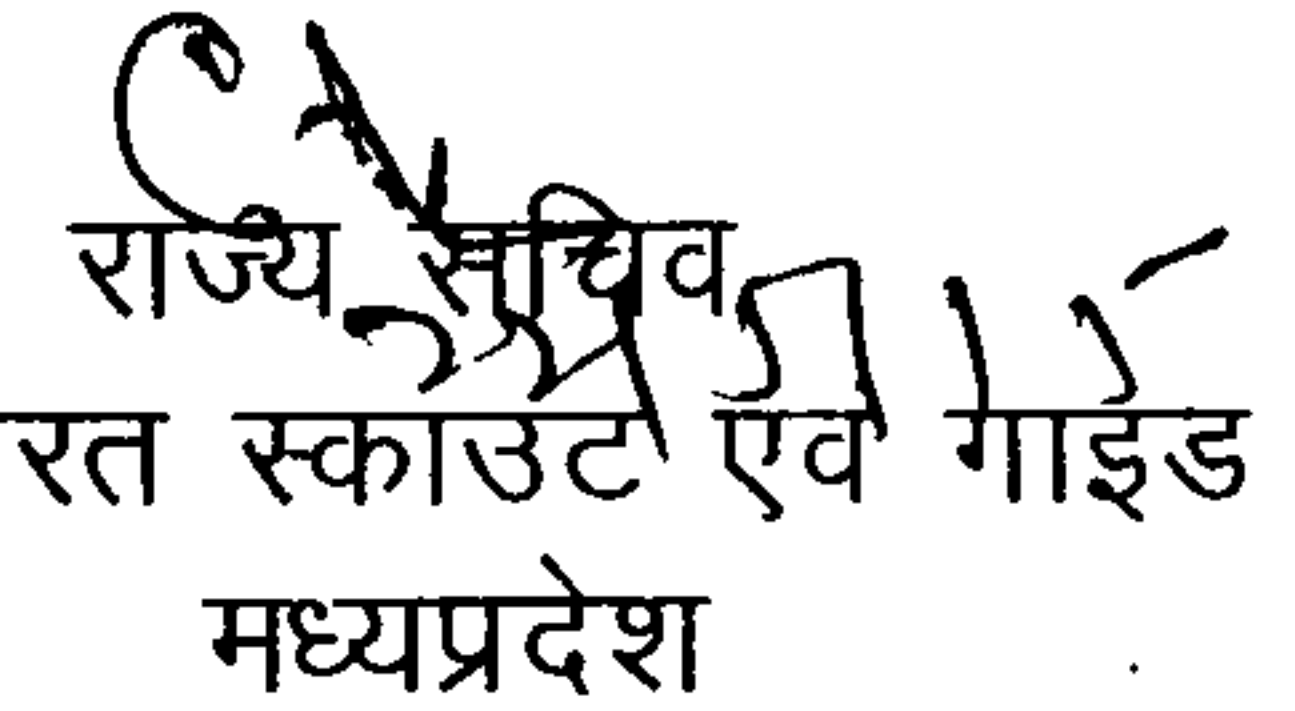 राज्य सचिव
रत स्काउट एवं गाईड
मध्यप्रदेश